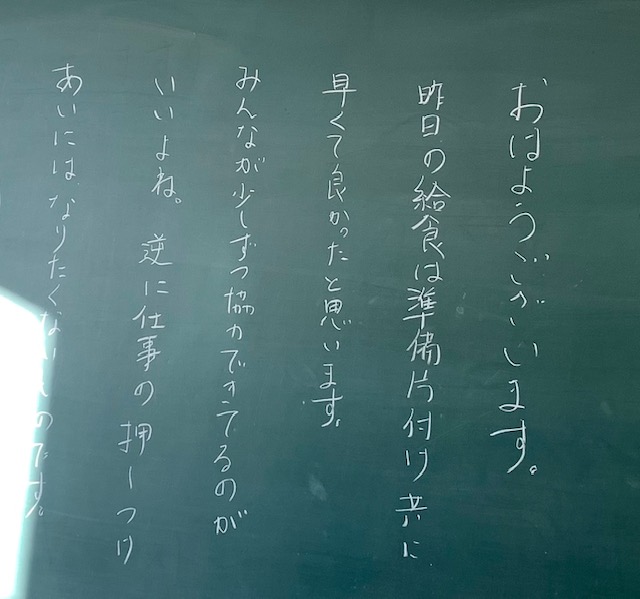 おはようございます。
昨日の給食は準備片付け共に
早くて良かったと思います。
みんなが少しずつ協力できてるのが
いいよね。 逆に仕事の押しつけ
あいにはなりたくないものです。